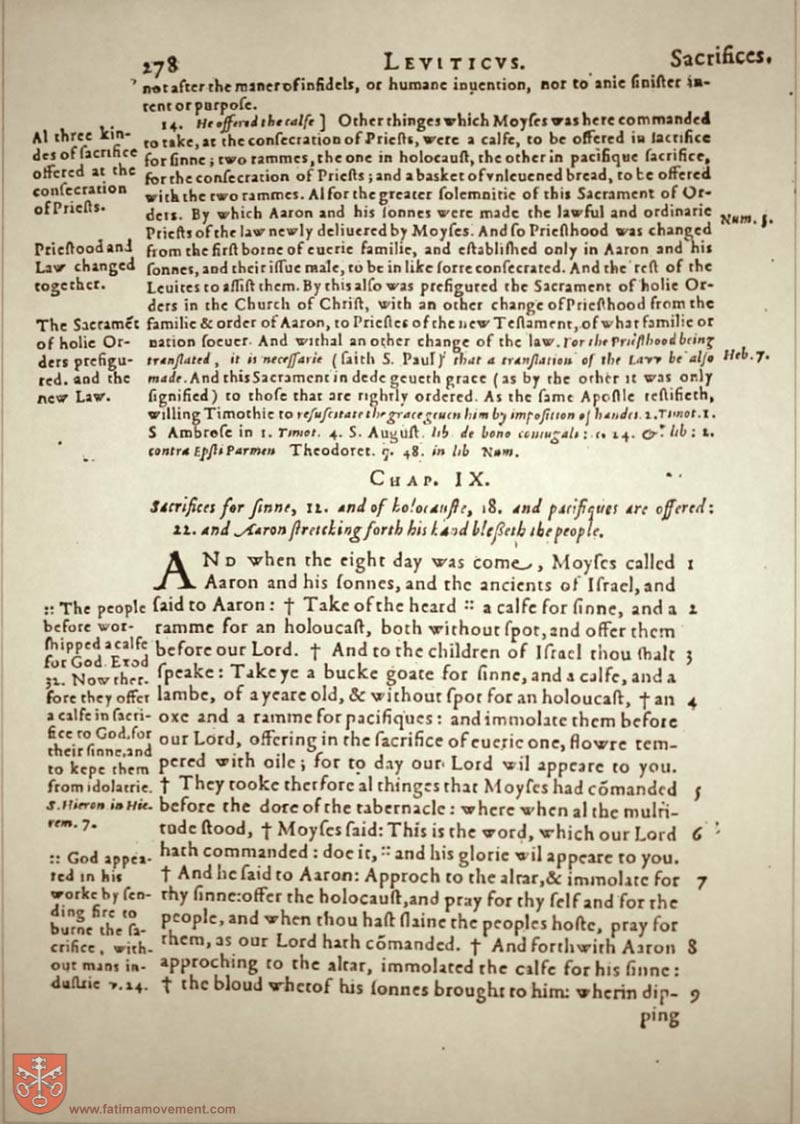 278 LEVITICVS. Sacrifices.
not after the maner of infidels, or humane inuention, nor to anie sinister in-
tent or purpose.
14. He offered the calfe ] Other thinges which Moyses was here commanded
to take, at the consecration of Priests, were a calfe, to be offered in sacrifice
for sinne; two rammes, the one in holocaust, the other in pacifique sacrifice,
for the consecration of Priests; and a basket of vnleuened bread, to be offered
with the two rammes. Al for the greater solemnitie of this Sacrament of Or-
ders. By which Aaron and his sonnes were made the lawful and ordinarie
Priests of the law newly deliuered by Moyses. And so Priesthood was changed
from the first borne of euerie familie, and established only in Aaron and his
sonnes, and their issue male, to be in like sorte consecrated. And the rest of the
Leuites to assist them. By this also was prefigured the Sacrament of holie Or-
ders in the Church of Christ, with an other change of Priesthood from the
familie & order of Aaron, to Priestes of the new Testament, of what familie or
nation soeuer. And withal an other change of the law. For the Priesthood being
translated, it is necessarie (saith S. Paul) that a translation of the Law be also
made. And this Sacrament in dede geueth grace (as by the other it was only
signified) to those that are rightly ordered. As the same Apostle testifieth,
willing Timothie to resuscitate the grace geuen him by imposition of handes. 2. Timot. 1.
S Ambrose in 1. Timot. 4. S. August. lib. de bono coniugali: c. 24. &. lib: 2.
contra Epist Parmen Theodoret. q. 48. in lib Num.
Al three kin-
des of sacrifice
offered at the
consecration
of Priests.
Priestood and
Law changed
together.
The Sacramēt
of holie Or-
ders prefigu-
red. and the
new Law.
Num. 3.
Heb. 7.
CHAP. IX.
Sacrifices for sinne, 12. and of holocauste, 18. and pacifiques are offered:
22. and Aaron stretching forth his hand blesseth the people.
AND when the eight day was come, Moyses called 1
Aaron and his sonnes, and the ancients of Israel, and
said to Aaron: † Take of the heard :: a calfe for sinne, and a 2
ramme for an holoucast, both without spot, and offer them
before our Lord. † And to the children of Israel thou shalt 3
speake: Take ye a bucke goate for sinne, and a calfe, and a
lambe, of a yeare old, & without spot for an holoucast, † an 4
oxe and a ramme for pacifiques: and immolate them before
our Lord, offering in the sacrifice of euerie one, flowre tem-
pered with oile; for to day our Lord wil appeare to you.
† They tooke therfore al thinges that Moyses had cōmanded 5
before the dore of the tabernacle: where when al the multi-
tude stood, † Moyses said: This is the word, which our Lord 6
hath commanded: doe it, :: and his glorie wil appeare to you.
† And he said to Aaron: Approch to the altar, & immolate for 7
thy sinne: offer the holocaust, and pray for thy self and for the
people, and when thou hast slaine the peoples hoste, pray for
them, as our Lord hath cōmanded. † And forthwith Aaron 8
approching to the altar, immolated the calfe for his sinne:
† the bloud wherof his sonnes brought to him: wherin dip- 9
ping
:: The people
before wor-
shipped a calfe
for God. Exod
32. Now ther-
fore they offer
a calfe in sacri-
fice to God, for
their sinne, and
to kepe them
from idolatrie.
S. Hieron in Hie-
rem. 7.
:: God appea-
red in his
worke by sen-
ding fire to
burne the sa-
crifice, with-
out mans in-
dustrie v. 24.
www.fatimamovement.com